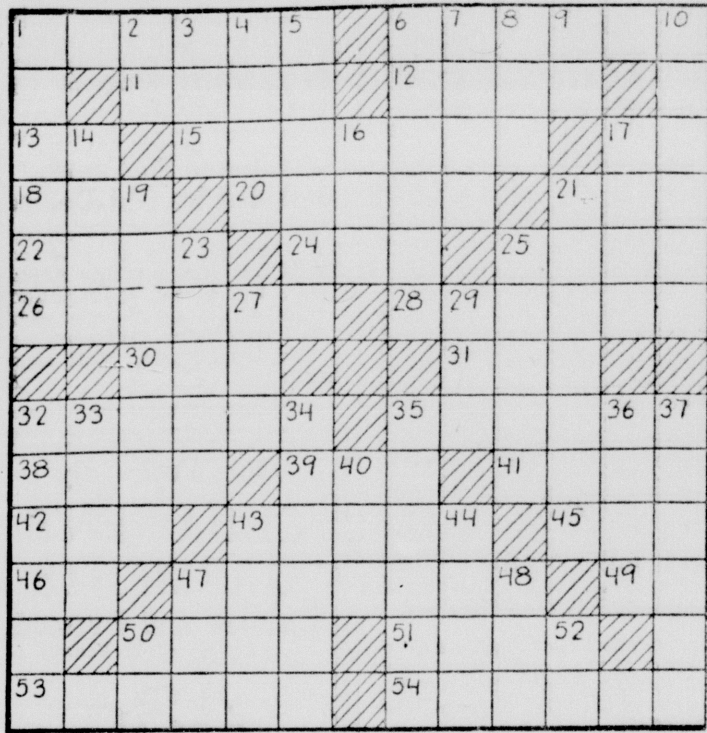 1 2 3 4 5 6 7 8 9 10
11 12
13 14 15 16 17
18 19 20 21
22 23 24 25
26 27 28 29
30 31
32 33 34 35 36 37
38 39 40 41
42 43 44 45
46 47 48 49
50 51 52
53 54